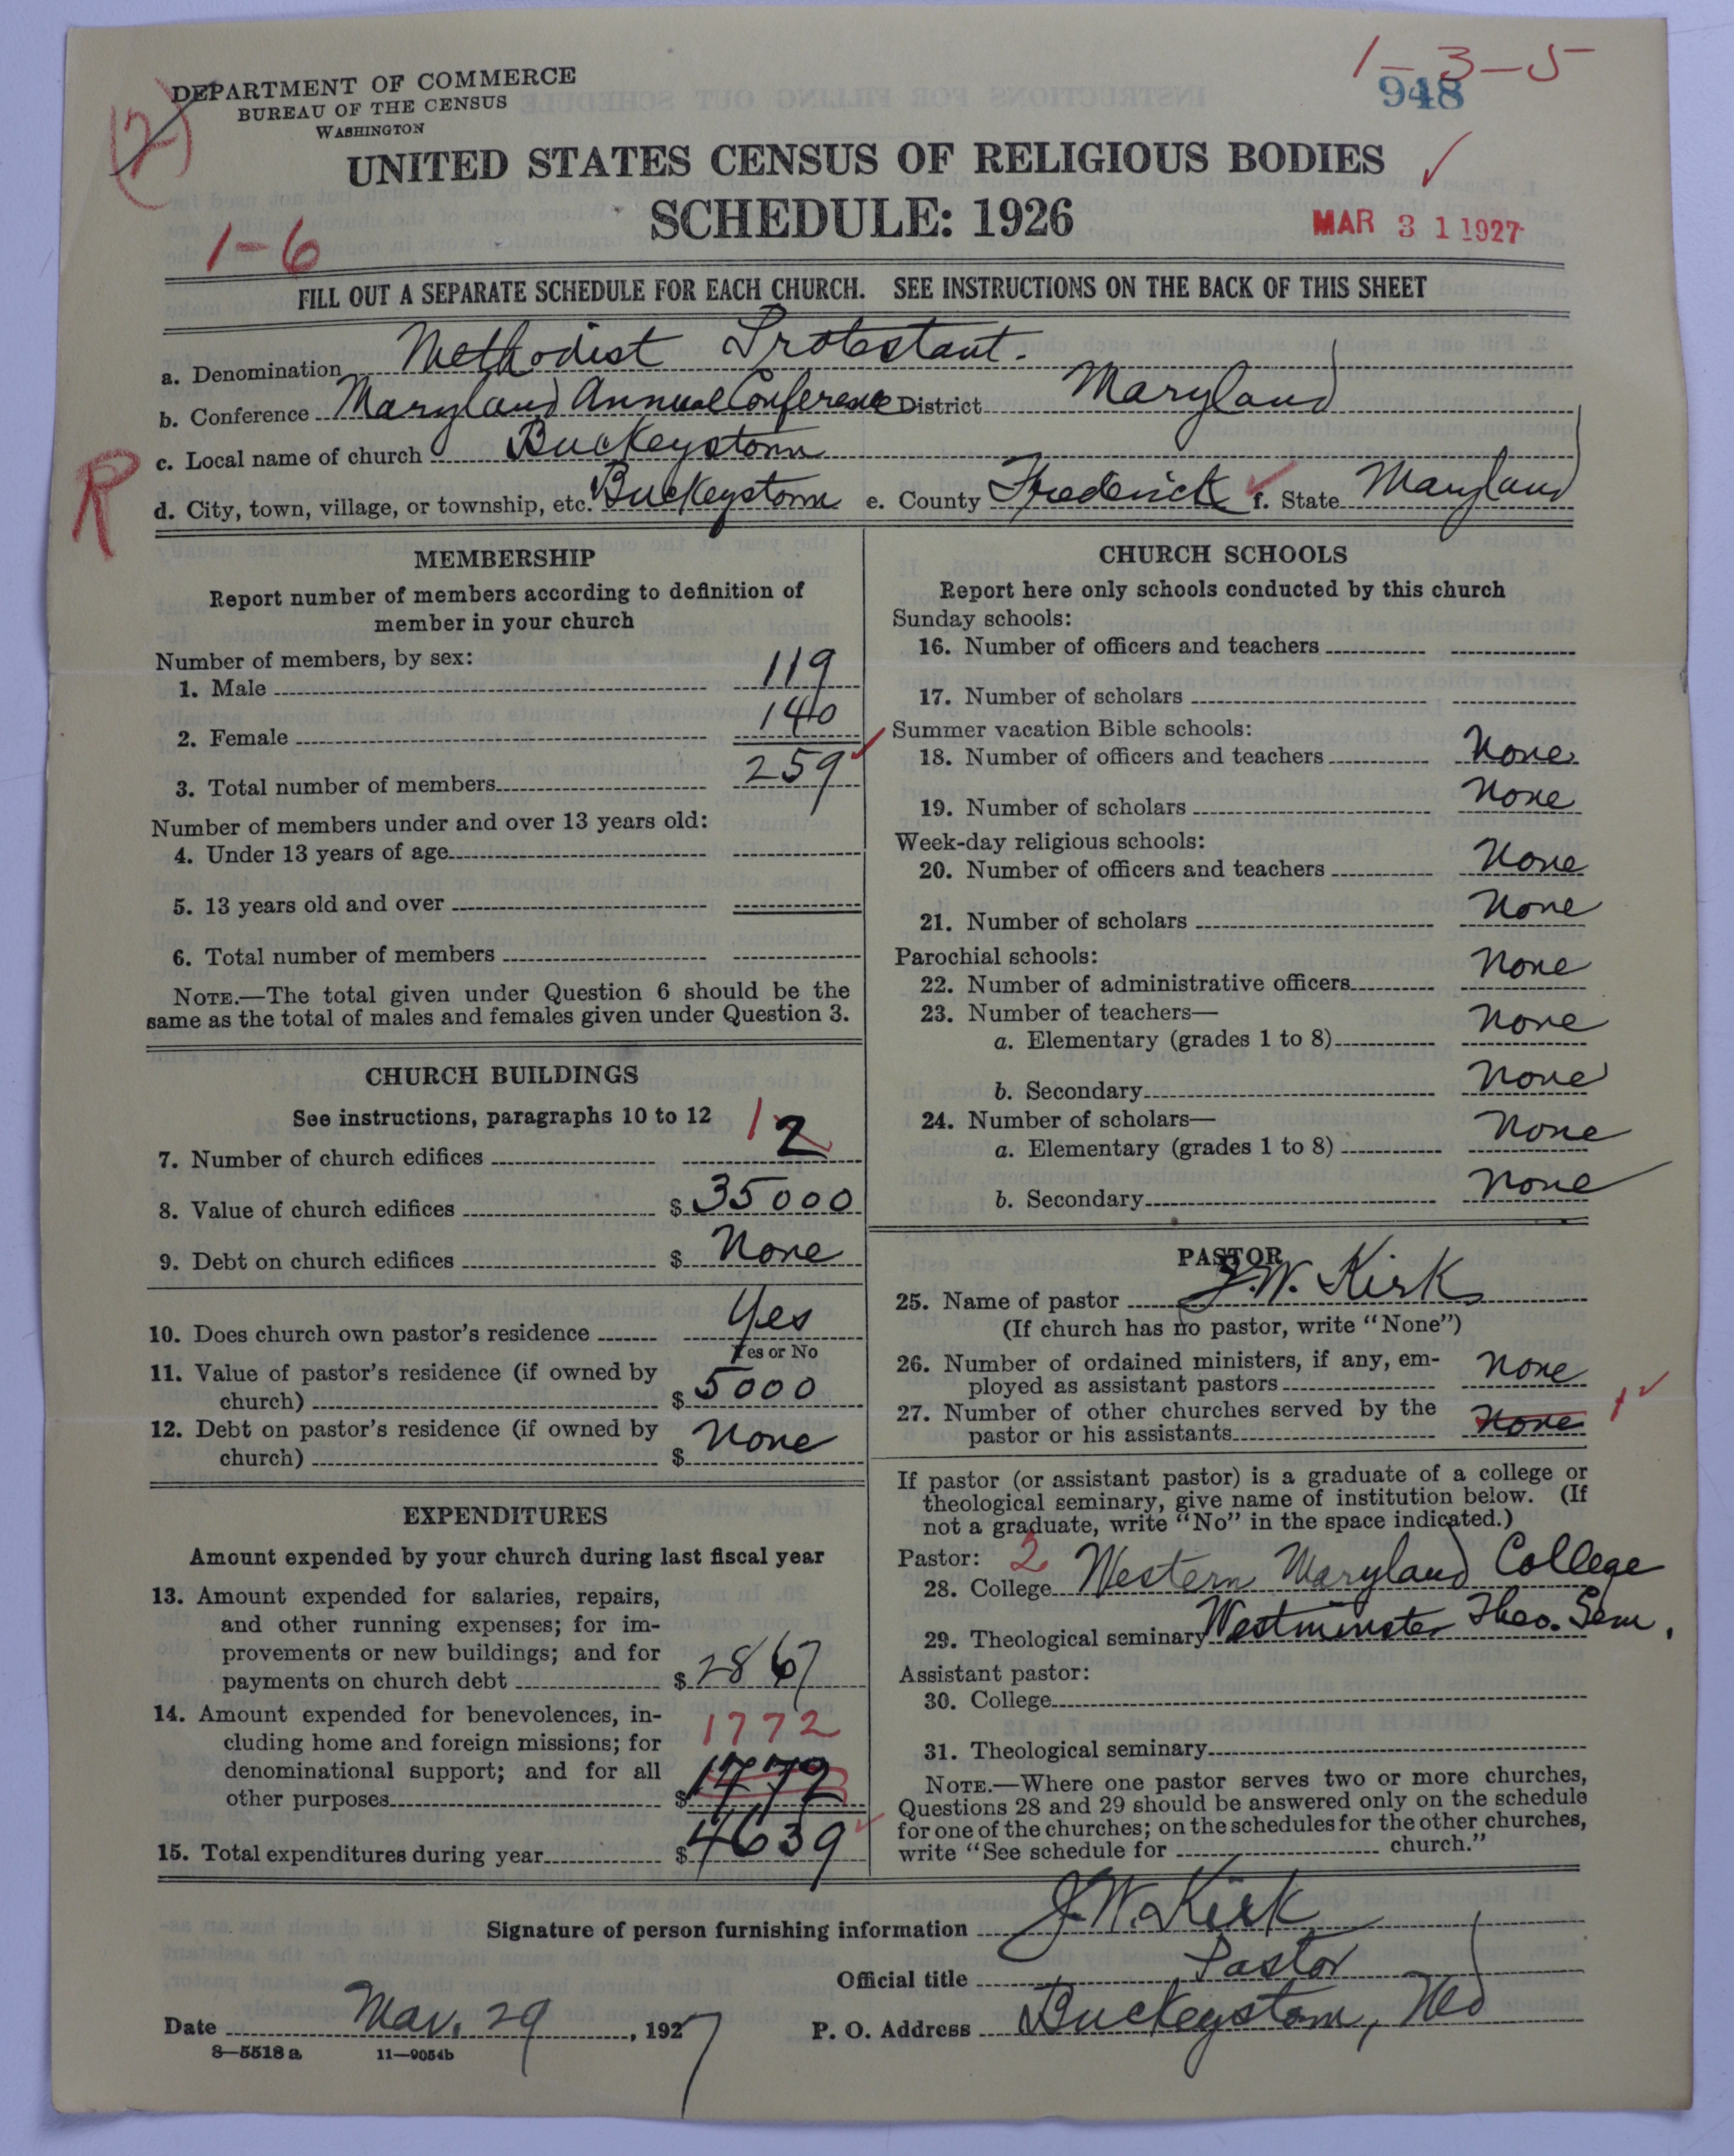 1-3-5
948
(2)
DEPARTMENT OF COMMERCE
BUREAU OF THE CENSUS
WASHINGTON
UNITED STATES CENSUS OF RELIGIOUS BODIES
SCHEDULE: 1926
MAR 31 1927
1-6
FILL OUT A SEPARATE SCHEDULE FOR EACH CHURCH. SEE INSTRUCTIONS ON THE BACK OF THIS SHEET
a. Denomination Methodist Protestant.
b. Conference Maryland Annual Conference District Maryland
R
c. Local name of church Buckeystown
d. City, town, village, or township, etc. Buckeystown e. County Frederick f. State Maryland
MEMBERSHIP
Report number of members according to definition of
member in your church
Number of members, by sex:
1. Male 119
2. Female 140
3. Total number of members 259
Number of members under and over 13 years old:
4. Under 13 years of age
5. 13 years old and over
6. Total number of members
NOTE.—The total given under Question 6 should be the
same as the total of males and females given under Question 3.
CHURCH BUILDINGS
See instructions, paragraphs 10 to 12
7. Number of church edifices 1 2
8. Value of church edifices $ 35000
9. Debt on church edifices $ None
10. Does church own pastor's residence Yes
Yes or No
11. Value of pastor's residence (if owned by
church) $ 5000
12. Debt on pastor's residence (if owned by
church) $ None
EXPENDITURES
Amount expended by your church during last fiscal year
13. Amount expended for salaries, repairs,
and other running expenses; for im-
provements or new buildings; and for
payments on church debt $ 2867
14. Amount expended for benevolences, in-
cluding home and foreign missions; for 1772
denominational support; and for all
other purposes $ 1772
15. Total expenditures during year $ 4639
CHURCH SCHOOLS
Report here only schools conducted by this church
Sunday schools:
16. Number of officers and teachers
17. Number of scholars
Summer vacation Bible schools:
18. Number of officers and teachers None
19. Number of scholars None
Week-day religious schools:
20. Number of officers and teachers None
21. Number of scholars None
Parochial schools:
22. Number of administrative officers None
23. Number of teachers—
a. Elementary (grades 1 to 8) None
b. Secondary None
24. Number of scholars—
a. Elementary (grades 1 to 8) None
b. Secondary None
PASTOR
25. Name of pastor J. W. Kirk
(If church has no pastor, write "None")
26. Number of ordained ministers, if any, em-
ployed as assistant pastors None
27. Number of other churches served by the
pastor or his assistants None 1
If pastor (or assistant pastor) is a graduate of a college or
theological seminary, give name of institution below. (If
not a graduate, write "No" in the space indicated.)
Pastor: 2
28. College Western Maryland College
29. Theological seminary Westminster Theo. Sem.
Assistant pastor:
30. College
31. Theological seminary
NOTE.—Where one pastor serves two or more churches,
Questions 28 and 29 should be answered only on the schedule
for one of the churches; on the schedules for the other churches,
write "See schedule for church."
Signature of person furnishing information J. W. Kirk
Official title Pastor
Date Mar. 29, 1927 P. O. Address Buckeystown, Md
8—5518 a 11—9054b